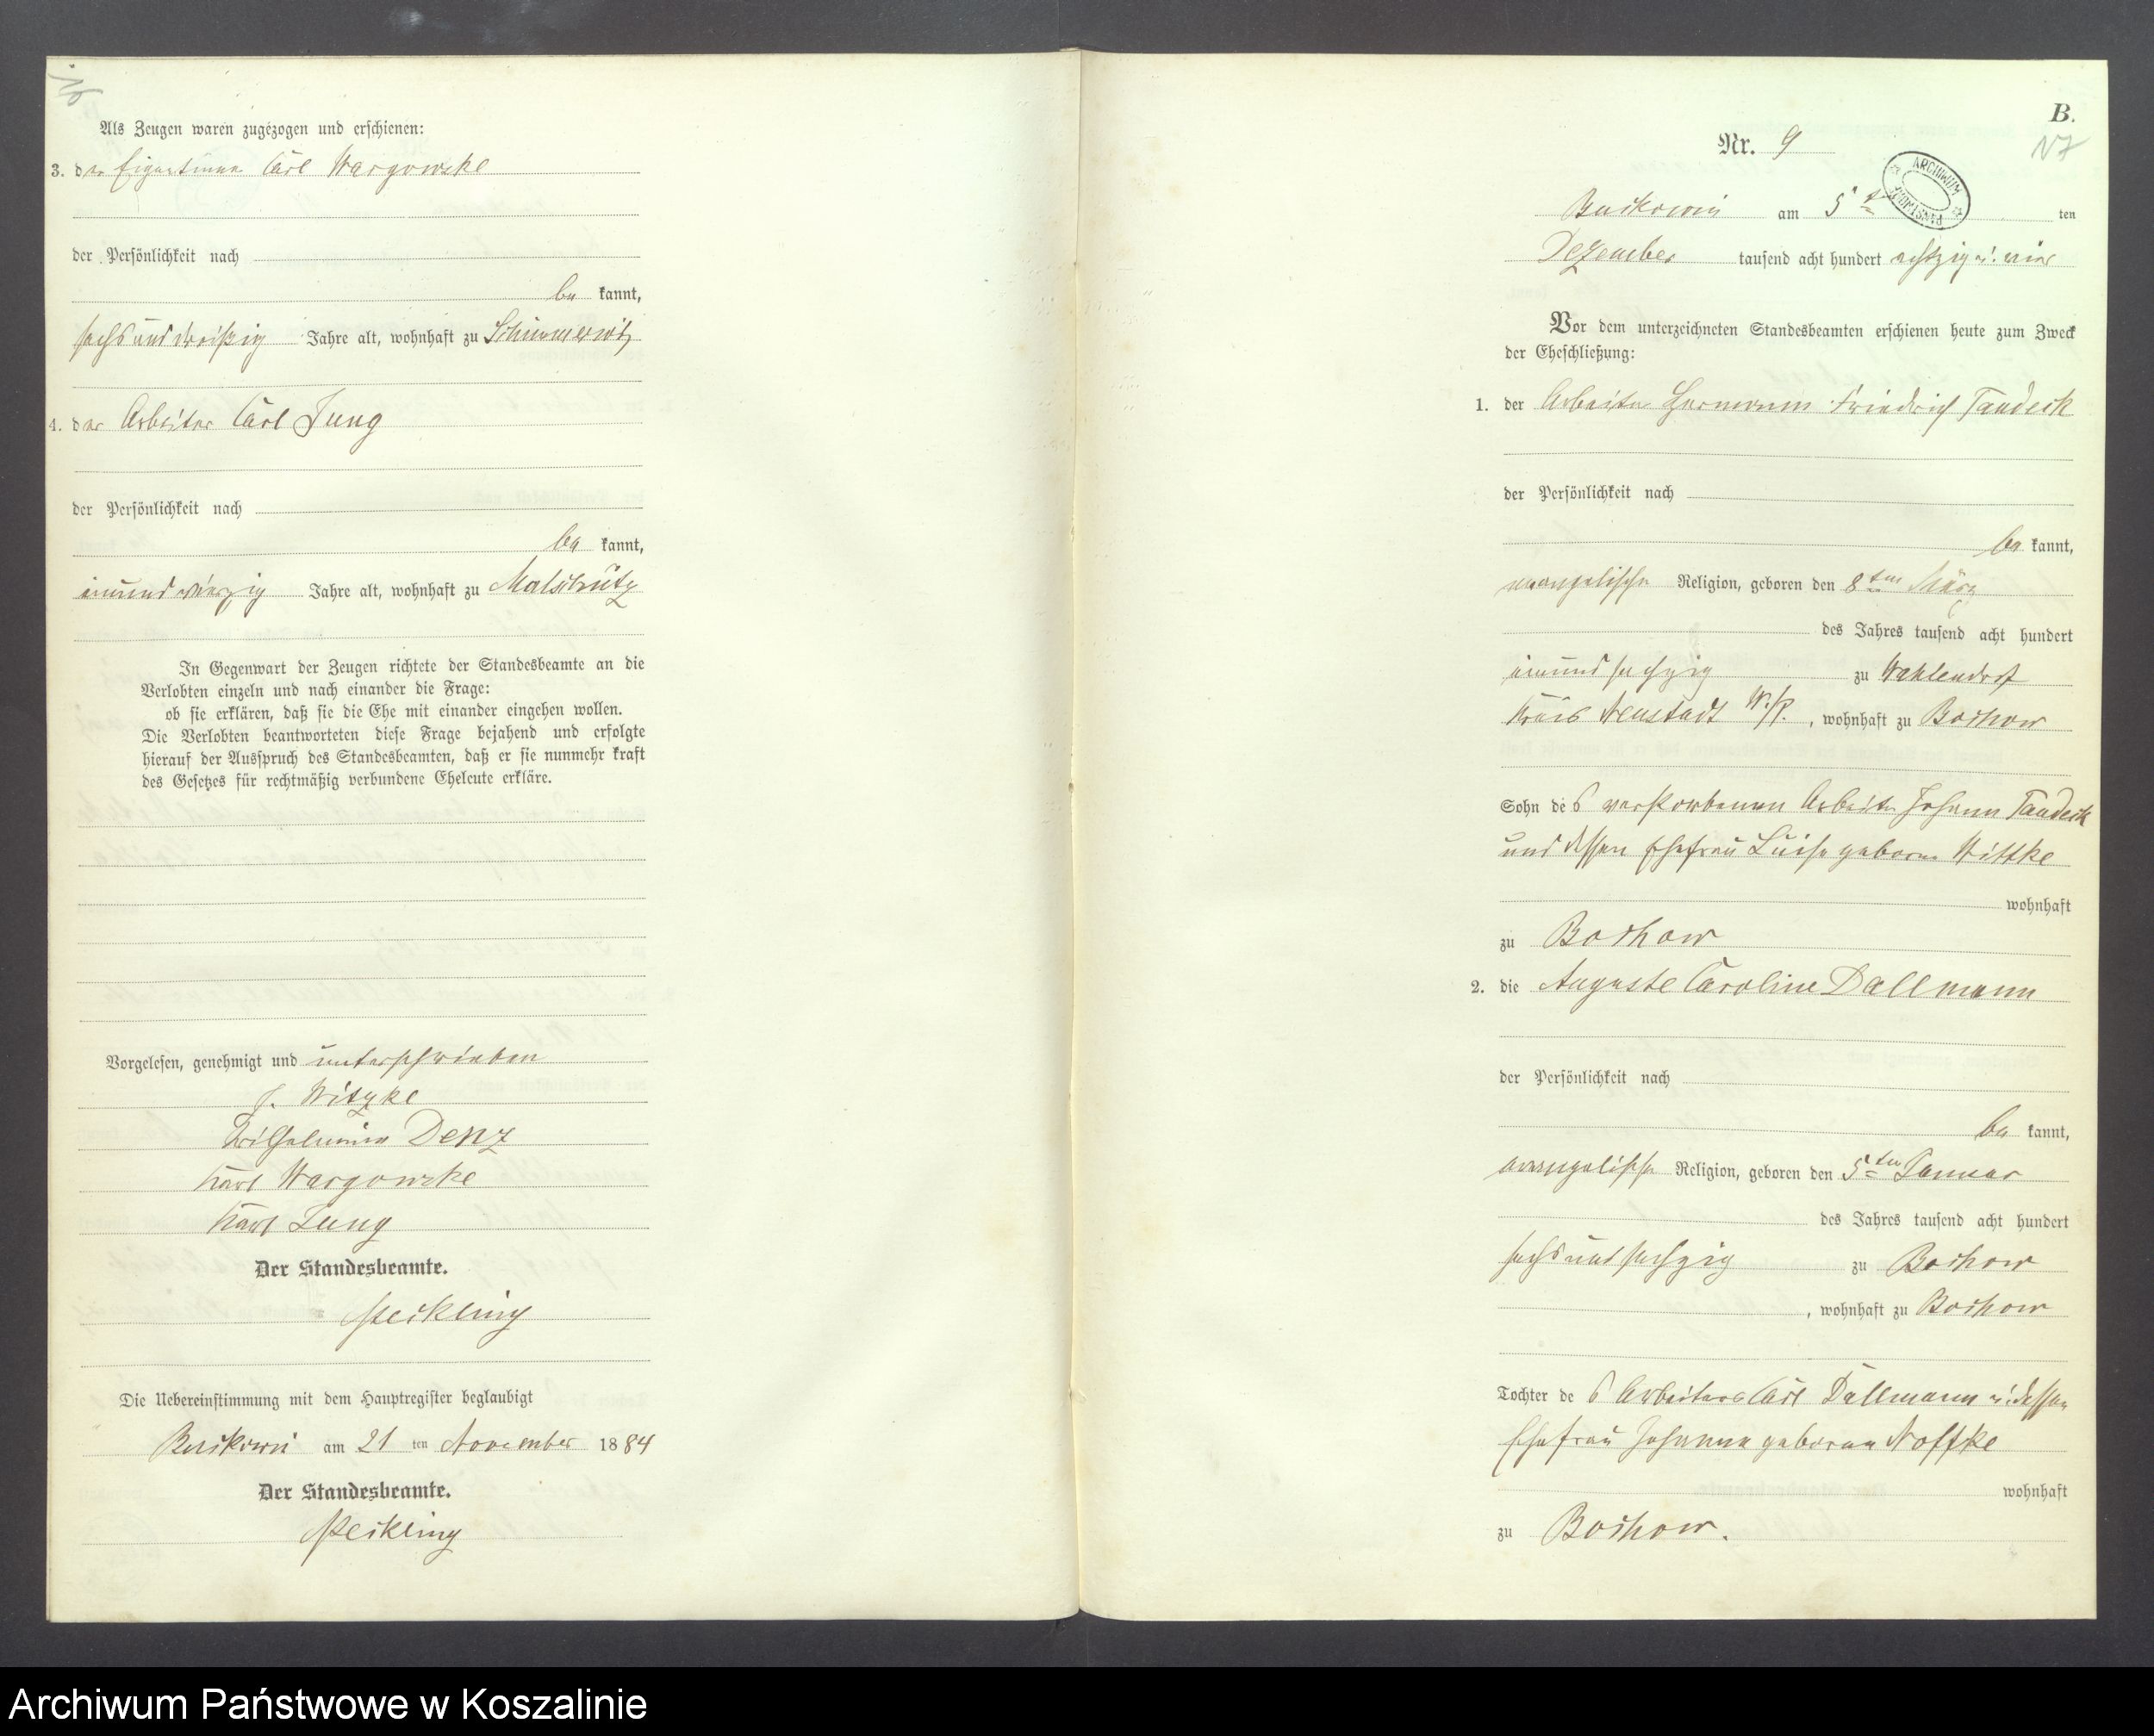 Als Zeugen waren zugezogen und erschienen:
3. der Eigentümer Carl Wargowske
der Persönlichkeit nach
be kannt,
sechsunddreißig Jahre alt, wohnhaft zu Schimmerwitz
4. der Arbeiter Carl Jung
der Persönlichkeit nach
be kannt,
einundvierzig Jahre alt, wohnhaft zu Malschütz
In Gegenwart der Zeugen richtete der Standesbeamte an die
Verlobten einzeln und nach einander die Frage:
ob sie erklären, daß sie die Ehe mit einander eingehen wollen.
Die Verlobten beantworteten diese Frage bejahend und erfolgte
hierauf der Ausspruch des Standesbeamten, daß er sie nunmehr kraft
des Gesetzes für rechtmäßig verbundene Eheleute erkläre.
Vorgelesen, genehmigt und unterschrieben
Witzke
Wilhelmine Denz
Karl Wargowske
Karl Jung
Der Standesbeamte.
Die Uebereinstimmung mit dem Hauptregister beglaubigt
Buckowin am 21 ten November 1884
Der Standesbeamte.
B.
17
Nr. 9
ARCHIWUM
Buckowin am 5ten ten
Dezember tausend acht hundert achtzig u. vier
Vor dem unterzeichneten Standesbeamten erschienen heute zum Zweck
der Eheschließung:
1. der Arbeiter Hermann Friedrich Tandeck
der Persönlichkeit nach
be kannt,
evangelischer Religion, geboren den 8ten März
des Jahres tausend acht hundert
einundsechzig zu Wahlendorf
Kreis Neustadt W./P., wohnhaft zu Bochow
Sohn des verstorbenen Arbeiter Johann Tandeck
und dessen Ehefrau Luise geborne Wittke
wohnhaft
zu Bochow
2. die Auguste Caroline Dallmann
der Persönlichkeit nach
be kannt,
evangelischer Religion, geboren den 5ten Januar
des Jahres tausend acht hundert
sechsundsechzig zu Bochow
, wohnhaft zu Bochow
Tochter des Arbeiters Carl Dallmann u. dessen
Ehefrau Johanna geborene Noffke
wohnhaft
zu Bochow.
Archiwum Państwowe w Koszalinie